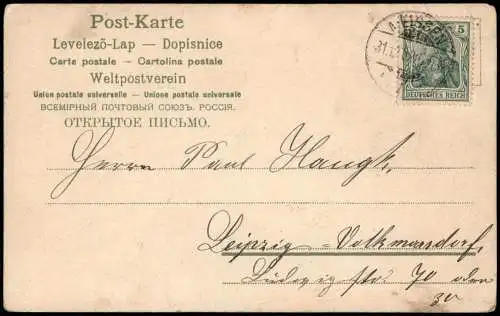 Post-Karte
Levelező-Lap — Dopisnice
Carte postale — Cartolina postale
Weltpostverein
Union postale universelle — Unione postale universale
ВСЕМІРНЫЙ ПОЧТОВЫЙ СОЮЗЪ. РОССІЯ.
ОТКРЫТОЕ ПИСЬМО.
5
DEUTSCHES REICH
Herrn Paul Haugk,
Leipzig-Volkmarsdorf,
Ludwigstr. 70 oder